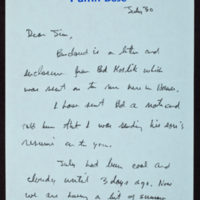 July '80
Dear Jim,
Enclosed is a letter and
enclosure from Bob which
was sent on to me here in
I have sent Bob a note and
told him that I was sending his son's
résumé on to you.
July had been cool and
cloudy until 3 days ago. Now
we are having a bit of summer